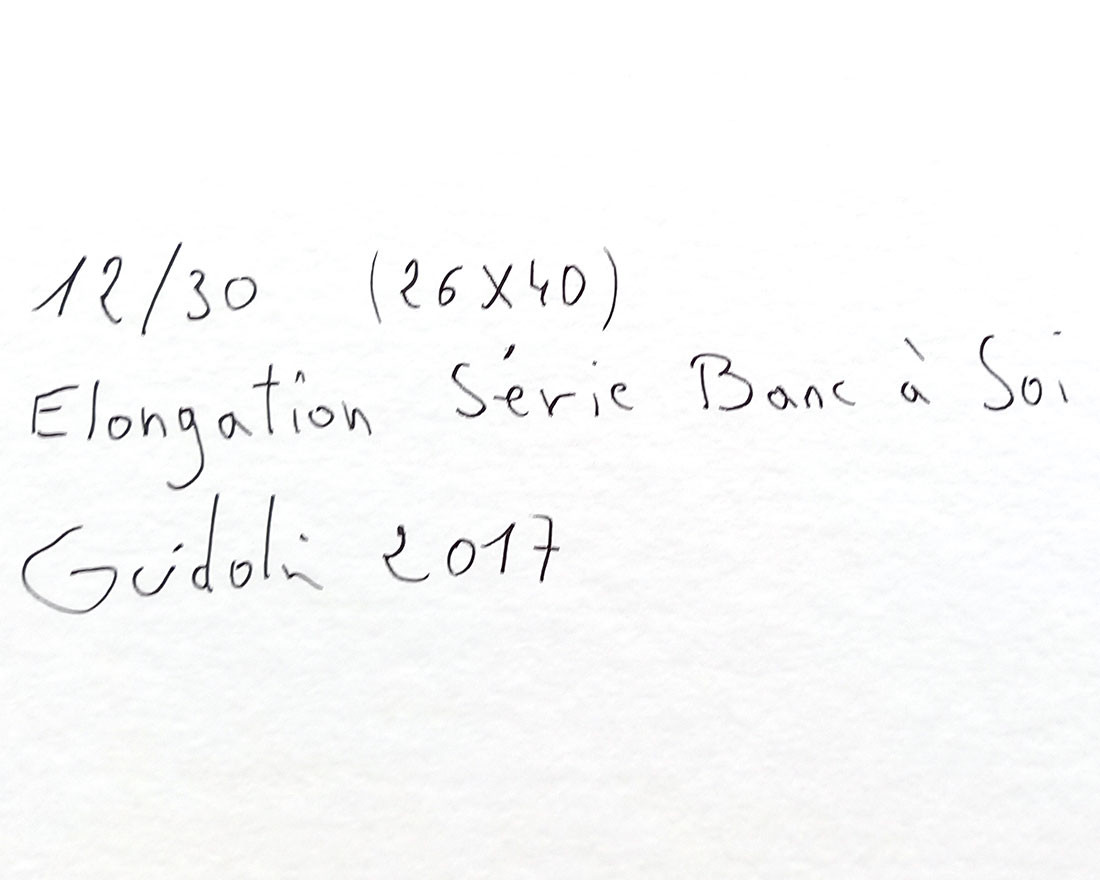 12/30 (26X40)
Elongation Série Banc à Soi
Guidolin 2017